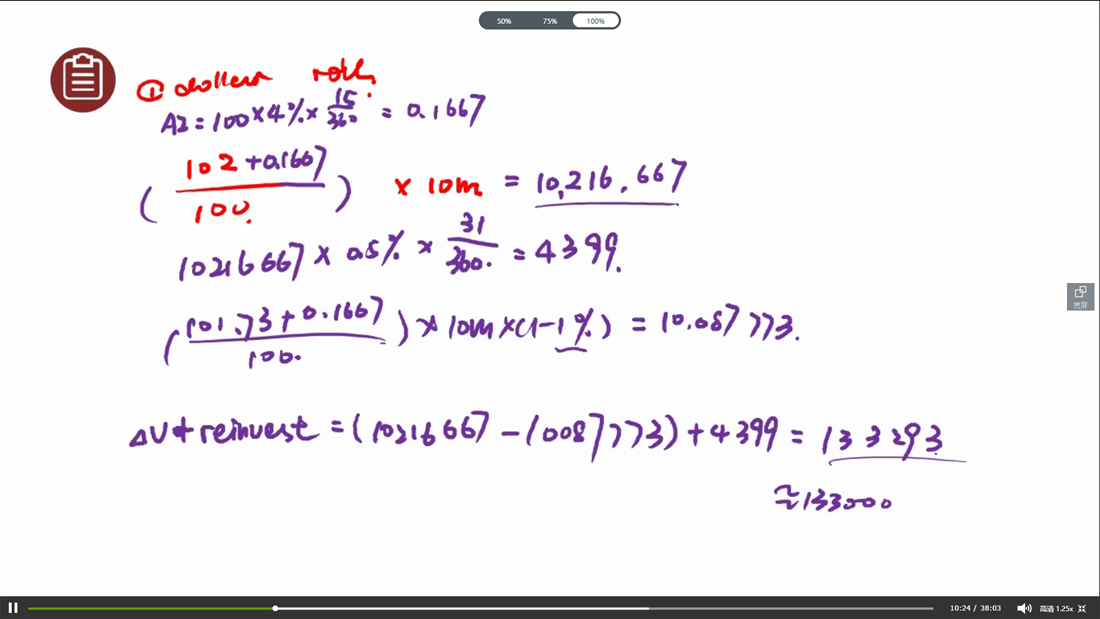 50% 75% 100%
① dollar roll
AI = 100 × 4% × 15/360 = 0.1667
( (102 + 0.1667) / 100. ) × 10m = 10,216,667
10216667 × 0.5% × 31/360. = 4399.
( (101.73 + 0.1667) / 100. ) × 10m × (1-1%) = 10.087773.
ΔV + reinvest = (10216667 - 10087773) + 4399 = 133293
≈ 133000
宽屏
10:24 / 38:03 高清 1.25x